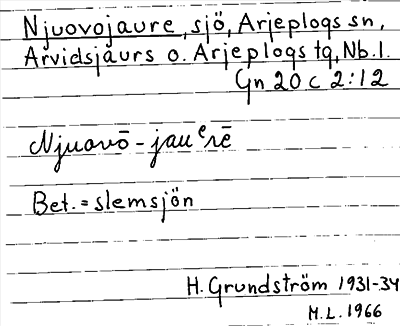 Njuovojaure, sjö, Arjeplogs sn,
Arvidsjaurs o. Arjeplogs tg, Nb.l.
Gn 20 c 2:12
Njuovō-jauᵉrē
Bet. = slemsjön
H. Grundström 1931-34
M.L. 1966